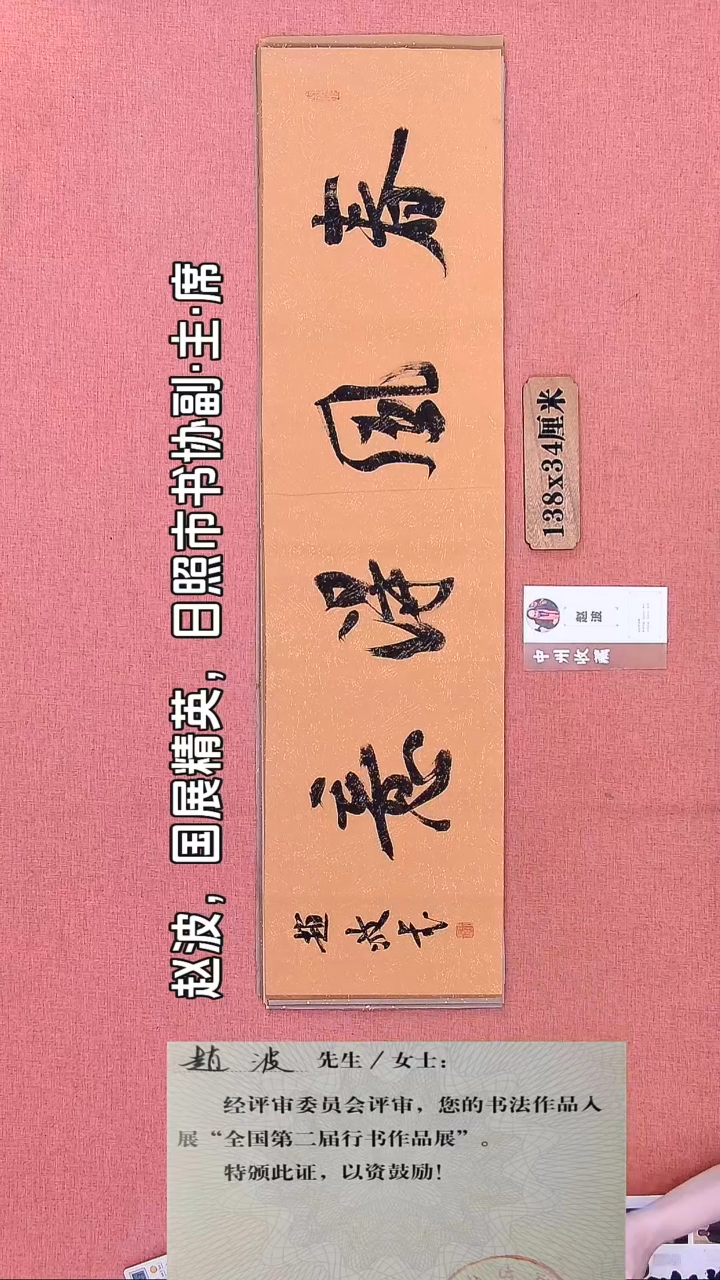 春風得意
趙波书
赵波，国展精英，日照市书协副·主·席
138x34厘米
赵波
中州收藏
趙 波 先生／女士：
经评审委员会评审，您的书法作品入
展“全国第二届行书作品展”。
特颁此证，以资鼓励！